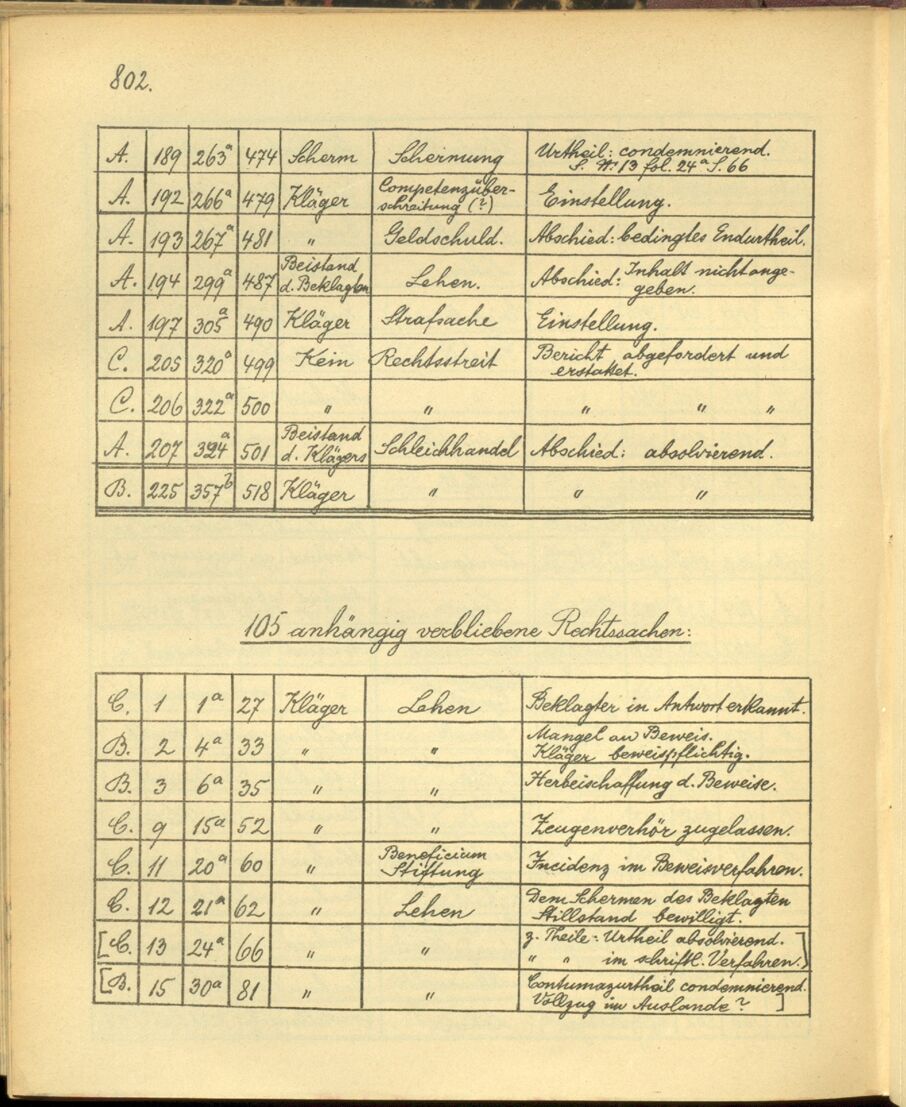 802.
A. 189 263a 474 Scherm Schermung Urtheil: condemnierend.
S. No 13 fol. 24a S. 66
A. 192 266a 479 Kläger Competenzüber-
schreitung (?) Einstellung.
A. 193 267a 481 " Geldschuld. Abschied: bedingtes Endurtheil.
A. 194 299a 487 Beistand
d. Beklagten Lehen. Abschied: Inhalt nicht ange-
geben.
A. 197 305a 490 Kläger Strafsache Einstellung.
C. 205 320a 499 Kein Rechtsstreit Bericht abgefordert und
erstattet.
C. 206 322a 500 " " " " "
A. 207 324a 501 Beistand
d. Klägers Schleichhandel Abschied: absolvierend.
B. 225 357b 518 Kläger " " "
105 anhängig verbliebene Rechtssachen:
C. 1 1a 27 Kläger Lehen Beklagter in Antwort erkannt.
B. 2 4a 33 " " Mangel an Beweis.
Kläger beweispflichtig.
B. 3 6a 35 " " Herbeischaffung d. Beweise.
C. 9 15a 52 " " Zeugenverhör zugelassen.
C. 11 20a 60 " Beneficium
Stiftung Incidenz im Beweisverfahren.
C. 12 21a 62 " Lehen Dem Schermen des Beklagten
Stillstand bewilligt.
[C. 13 24a 66 " " z. Theile: Urtheil absolvierend.
" " im schriftl. Verfahren.]
[B. 15 30a 81 " " Contumazurtheil condemnierend.
Vollzug im Auslande? ]